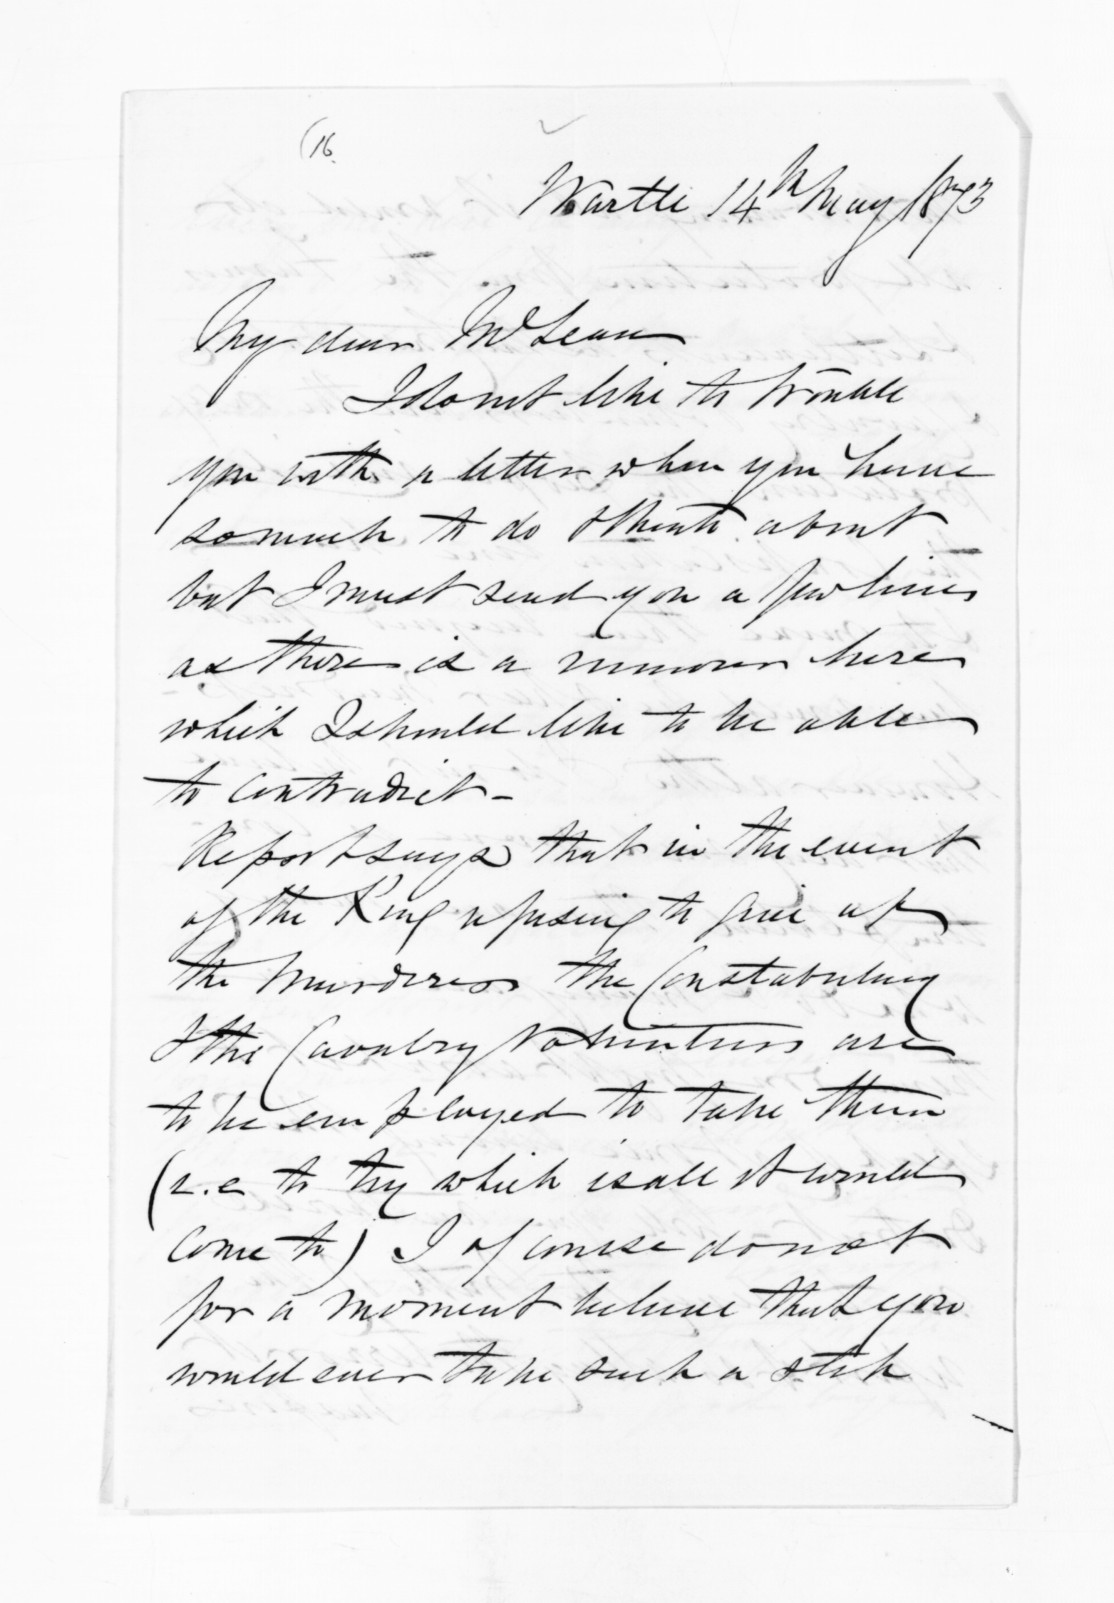 (16
Wartle 14th May 1873
My dear McLean
I do not like to trouble
you with a letter when you have
so much to do & think about
but I must send you a few lines
as there is a rumour here
which I should like to be able
to contradict -
Report says that in the event
of the King refusing to give up
the Murderers the Constabulary
& the Cavalry Volunteers are
to be employed to take them
(i.e to try which is all it would
come to) I of course do not
for a moment believe that you
would ever take such a step